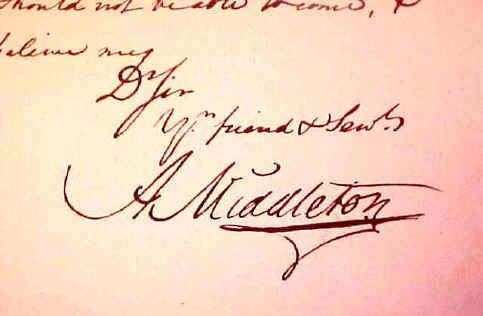 should not be able to come, &
believe me
Dr Sir
Yr. friend & Servt.
A. Middleton